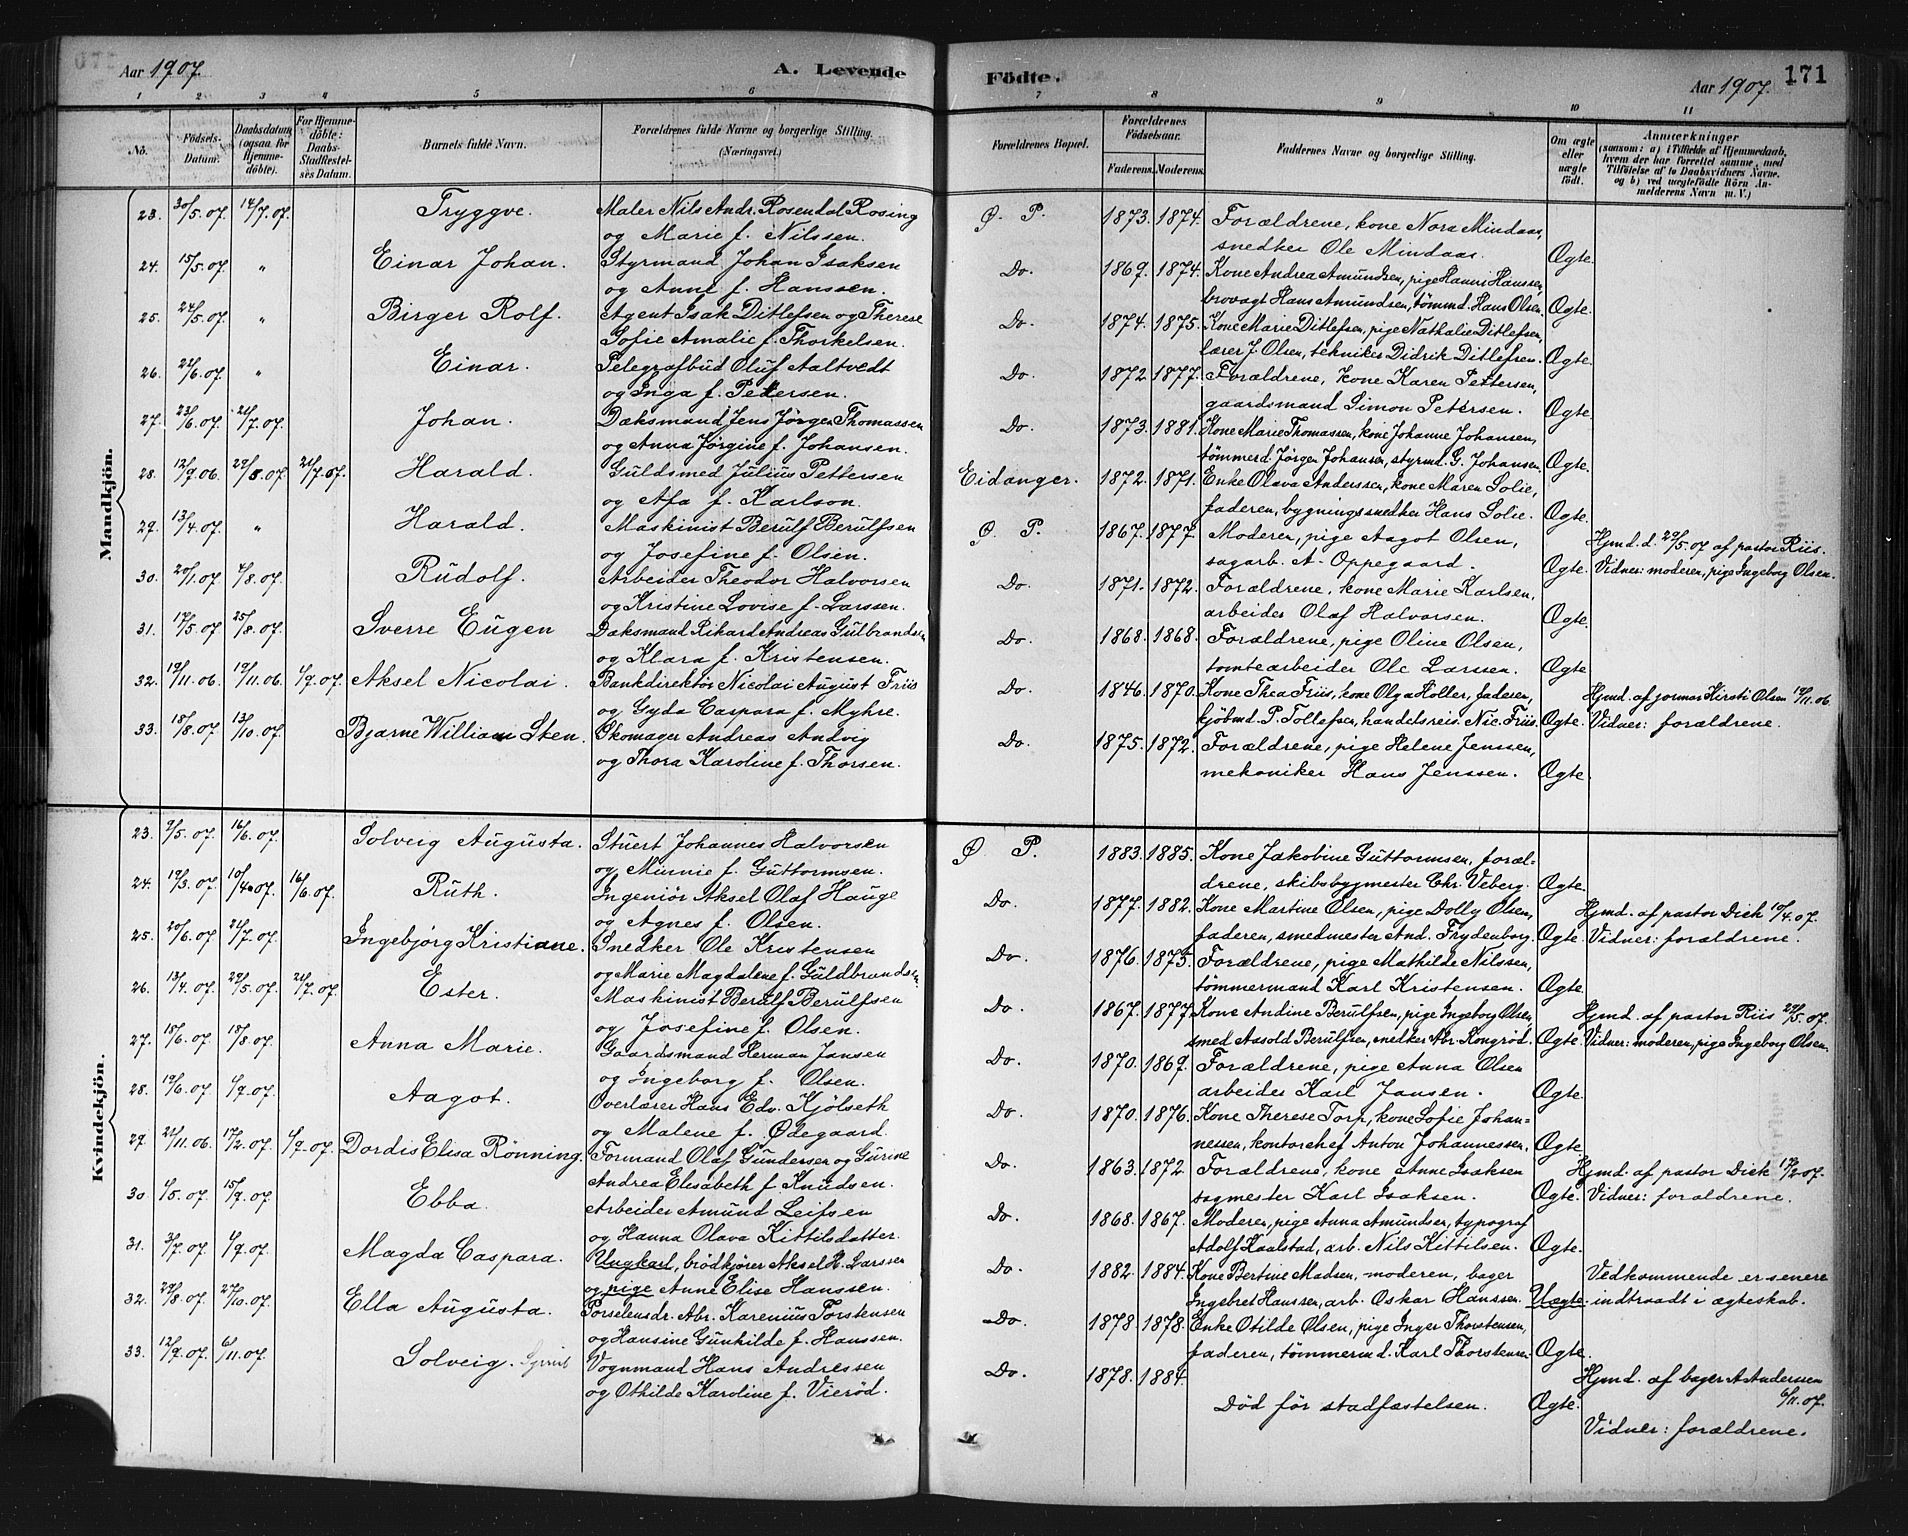 Aar 1907. A. Levende
1 2 3 4 5 6
No. Födsels-Datum. Daabsdatum (ogsaa for Hjemme-döbte). For Hjemme-döbte: Daabs-Stadfæstel-ses Datum. Barnets fulde Navn. Forældrenes fulde Navne og borgerlige Stilling. (Næringsvei.)
Mandkjön.
23. 30/5.07. 14/7.07. Tryggve. Maler Nils Andr. Rosendal Rosing
og Marie f. Nilssen.
24. 15/5.07. " Einar Johan. Styrmand Johan Isaksen
og Anne f. Hanssen.
25. 24/5.07. " Birger Rolf. Agent Isak Ditlefsen og Therese
Sofie Amalie f. Thorkelsen.
26. 21/6.07. " Einar. Telegrafbud Oluf Aaltvedt
og Inga f. Pedersen.
27. 23/6.07. 21/7.07. Johan. Dæksmand Jens Jørgen Thomassen
og Anna Jørgine f. Johansen.
28. 12/9.06. 29/5.07. 21/7.07. Harald. Guldsmed Julius Pettersen
og Afa f. Karlson.
29. 13/4.07. " Harald. Maskinist Berulf Berulfsen
og Josefine f. Olsen.
30. 20/1.07. 4/8.07. Rudolf. Arbeider Theodor Halvorsen
og Kristine Lovise f. Larssen.
31. 17/5.07. 25/8.07. Sverre Eugen Dæksmand Rikard Andreas Gulbrandsen
og Klara f. Kristensen.
32. 19/11.06. 19/11.06. 1/9.07. Aksel Nicolai. Bankdirektör Nicolai August Friis
og Gyda Caspara f. Myhre.
33. 18/8.07. 13/10.07. Bjarne William Sten. Skomager Andreas Andvig
og Thora Karoline f. Thorsen.
Kvindekjön.
23. 9/5.07. 16/6.07. Solveig Augusta. Stuert Johannes Halvorsen
og Minnie f. Guttormsen.
24. 19/3.07. 10/4.07. 16/6.07. Ruth. Ingeniör Aksel Olaf Hauge
og Agnes f. Olsen.
25. 20/6.07. 21/7.07. Ingebjörg Kristiane. Snedker Ole Kristensen
og Marie Magdalene f. Guldbrandsen.
26. 13/4.07. 29/5.07. 21/7.07. Ester. Maskinist Berulf Berulfsen
og Josefine f. Olsen.
27. 18/6.07. 18/8.07. Anna Marie. Gaardsmand Herman Jansen
og Ingeborg f. Olsen.
28. 19/6.07. 1/9.07. Aagot. Overlærer Hans Edv. Kjölseth
og Malene f. Ødegaard.
27. 21/11.06. 17/2.07. 1/9.07. Dordis Elisa Rönning. Formand Olaf Gundersen og Gurine
Andrea Elisabeth f. Knudsen.
30. 1/5.07. 15/9.07. Ebba. Arbeider Amund Leifsen
og Hanna Olava Kittilsdatter.
31. 3/7.07. 1/9.07. Magda Caspara. Ungkarl, brödkjörer Aksel H. Larssen
og pige Anne Elise Hanssen.
32. 29/8.07. 27/10.07. Ella Augusta. Porselensdr. Abr. Karenius Torstensen
og Hansine Gunhilde f. Hanssen.
33. 12/9.07. 6/11.07. Solveig. Vognmand Hans Andressen
og Othilde Karoline f. Vieröd.
Födte. Aar 1907. 171
7 8 9 10 11
Forældrenes Bopæl. Forældrenes Födselsaar. Faderens. Moderens. Faddernes Navne og borgerlige Stilling. Om ægte eller uægte födt. Anmærkninger (saasom: a) i Tilfælde af Hjemmedaab, hvem der har forrettet samme, med Tilföielse af to Daabsvidners Navne, og b) ved uægtefödte Börn An-melderens Navn m. V.)
Ø. P. 1873. 1874. Forældrene, kone Nora Mindaas,
snedker Ole Mindaas. Ægte.
Do. 1869. 1874. Kone Andrea Amundsen, pige Hanni Hanssen,
brovagt Hans Amundsen, tömmd. Hans Olsen. Ægte.
Do. 1874. 1875. Kone Marie Ditlefsen, pige Nathalie Ditlefsen,
lærer J. Olsen, tekniker Didrik Ditlefsen. Ægte.
Do. 1872. 1877. Forældrene, kone Karen Pettersen,
gaardsmand Simon Petersen. Ægte.
Do. 1873. 1881. Kone Marie Thomassen, kone Johanne Johansen,
tömmerd Jörgen Johansen, styrmd. G. Johansen. Ægte.
Eidanger. 1872. 1871. Enke Olava Anderssen, kone Maren Solie,
faderen, bygningssnedker Hans Solie. Ægte.
Ø. P. 1867. 1877. Moderen, pige Aagot Olsen, Hjmd. d. 29/5.07 af pastor Riis.
sagarb. A. Oppegaard. Ægte. Vidner: moderen, pige Ingeborg Olsen.
Do. 1871. 1872. Forældrene, kone Marie Karlsen,
arbeider Olaf Halvorsen. Ægte.
Do. 1868. 1868. Forældrene, pige Oline Olsen,
tomtearbeider Ole Larssen. Ægte
Do. 1846. 1870. Kone Thea Friis, kone Olga Holler, faderen, Hjmd. af jormor Kirsti Olsen 19/11.06.
kjöbmd. P. Tollefsen, handelsreis. Nic. Friis. Ægte. Vidner: forældrene.
Do. 1875. 1872. Forældrene, pige Helene Jenssen,
mekaniker Hans Jenssen. Ægte.
Ø P. 1883. 1885. Kone Jakobine Guttormsen, foræl-
drene, skibsbygmester Chr. Veberg. Ægte.
Do. 1877. 1882. Kone Martine Olsen, pige Dolly Olsen, Hjmd. af pastor Dick 10/4.07.
faderen, smedmester And. Frydenborg. Ægte. Vidner: forældrene.
Do. 1876. 1875. Forældrene, pige Mathilde Nilssen,
tömmermand Karl Kristensen. Ægte.
Do. 1867. 1877. Kone Andine Berulfsen, pige Ingeborg Olsen Hjmd. af pastor Riis 29/5.07.
smed Aasold Berulfsen, snedker Abr. Kongröd. Ægte. Vidner: moderen, pige Ingeborg Olsen.
Do. 1870. 1869. Forældrene, pige Anna Olsen
arbeider Karl Jansen. Ægte.
Do. 1870. 1876. Kone Therese Torp, kone Sofie Johan-
nessen, kontorchef Anton Johannessen. Ægte.
Do. 1863. 1872. Forældrene, kone Anne Isaksen Hjmd. af pastor Dick 17/2.07.
sagmester Karl Isaksen. Ægte. Vidner: forældrene.
Do. 1868. 1867. Moderen, pige Anna Amundsen, typograf
Adolf Haalstad, arb. Nils Kittilsen. Ægte.
Do. 1882. 1884. Kone Bertine Madsen, moderen, bager Vedkommende er senere
Ingebret Hanssen, arb. Oskar Hanssen. Uægte. indtraadt i ægteskab.
Do. 1878. 1878. Enke Otilde Olsen, pige Inger Thorstensen,
faderen, tömmermd. Karl Thorstensen. Ægte.
Do. 1878. 1884. Hjmd. af bager A Anderssen
6/11.07.
Död för stadfæstelsen. Ægte.
Vidner: forældrene.